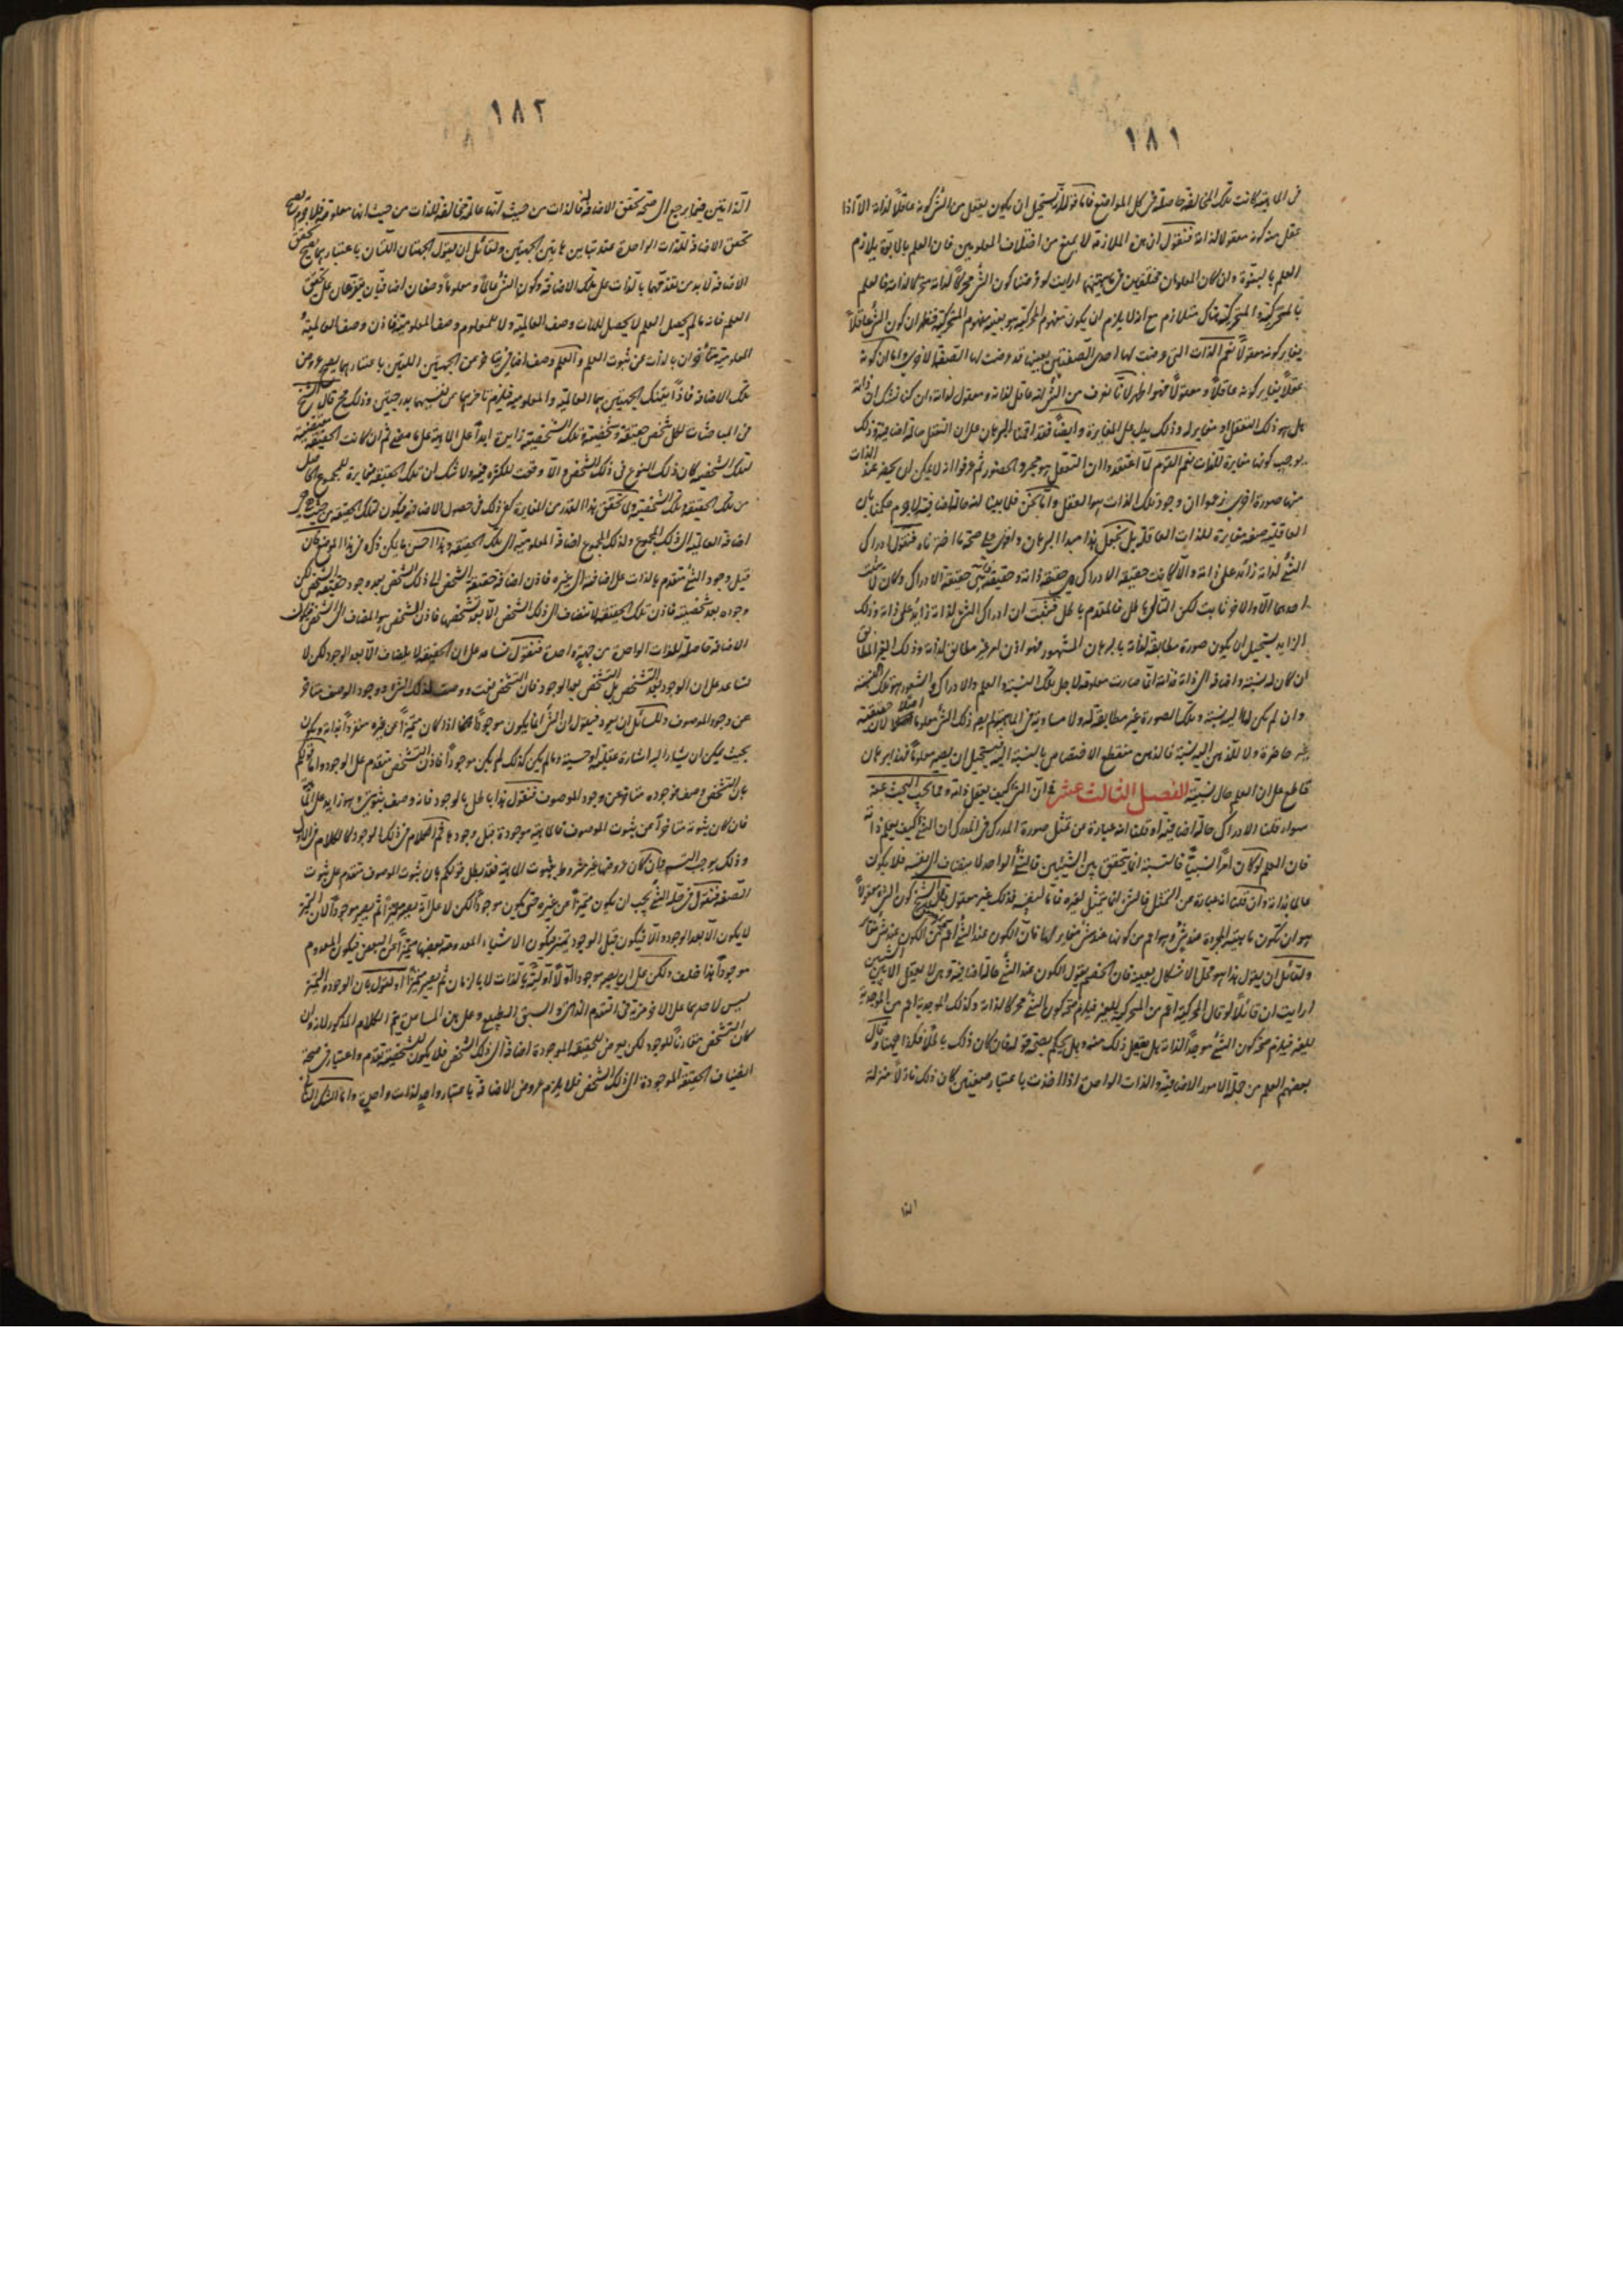 ١٨١
في الماهية كانت تلك المخالفة حاصلة في كل المواضع فاما قوله انه يستحيل ان يكون يعقل من الشئ كونه عاقلا لذاته الا اذا
عقل منه كونه معقولا لذاته فنقول ان هذه الملازمة لا يمنع من اختلاف المعلومين فان العلم بالابوة يلازم
العلم بالبنوة وان كان المعلومان مختلفين في ماهيتهما ارايت لو فرضنا كون الشئ محركا لذاته متحركا لذاته فالعلم
بالمحركية والمتحركية هناك متلازم مع انه لا يلزم ان يكون مفهوم المحركية هو بعينه مفهوم المتحركية فظهر ان كون الشئ عاقلا
يغاير كونه معقولا ثم الذات التي عرضت لها احدى الصفتين بعينها قد عرضت لها الصفة الاخرى واما ان كونه
عقلا يغاير كونه عاقلا ومعقولا فهو اظهر لانا نعرف من الشئ انه عاقل لذاته ومعقول لذاته وان كنا نشك ان ذاته
هل هو ذلك التعقل او مغاير له وذلك يدل على المغايرة وايضا فقد اقمنا البرهان على ان التعقل حالة اضافية وذلك
يوجب كونها مغايرة للذات نعم القوم لما اعتقدوا ان التعقل هو مجرد الحضور ثم عرفوا انه لا يمكن ان يحضر عند الذات
منها صورة اخرى زعموا ان وجود تلك الذات هو العقل واما نحن فلما بينا انه حالة اضافية لا جرم حكمنا بان
العاقلية صفة مغايرة للذات العاقلة بل نجعل هذا مبدا البرهان واقوى على صحة ما اخترناه فنقول ادراك
الشئ لذاته زائد على ذاته والا لكانت حقيقة الادراك هي حقيقة ذاته وحقيقة ذاته هي حقيقة الادراك وكان لا يثبت
احدهما الا والاخر ثابت لكن التالي باطل فالمقدم باطل فثبت ان ادراك الشئ لذاته زائد على ذاته وذلك
الزايد يستحيل ان يكون صورة مطابقة لذاته بالبرهان المشهور فهو اذن امر غير مطابق لذاته وذلك الغير المطابق
ان كان له نسبة واضافة الى ذاته فذاته انما صارت معلومة لاجل تلك النسبة والعلم والادراك والشعور هو تلك النسبة
وان لم يكن لها اليه نسبة وتلك الصورة غير مطابقة له ولا مساوية في الماهية لم يصر ذلك الشئ معلوما اصلا لان حقيقته
غير حاضرة ولا للذهن اليه نسبة فالذهن منقطع الاختصاص بالنسبة اليه فيستحيل ان يصير معلوما فهذا برهان
قاطع على ان العلم حال نسبية الفصل الثالث عشر في ان الشئ كيف يعقل ذاته ومما يجب البحث عنه
سواء قلنا الادراك حالة اضافية او قلنا انه عبارة عن تمثل صورة المدرك في المدرك ان الشئ كيف يعلم ذاته
فان العلم لو كان امرا نسبيا فالنسبة انما تتحقق بين الشيئين فالشئ الواحد لا يضاف الى نفسه فلا يكون
عالما بذاته وان قلنا انه عبارة عن التمثل فالشئ انما يتمثل لغيره فاما لنفسه فذلك غير معقول قال الشيخ كون الشئ معقولا
هو ان تكون ماهيته المجردة عند شئ وهو اعم من كونها عند شئ مغاير لها فان الكون عند الشئ اعم من الكون عند شئ مغاير
ولقائل ان يقول هذا هو محل الاشكال بعينه فان الخصم يقول الكون عند الشئ حالة اضافية وهي لا يعقل الا بين الشيئين
ارايت ان قائلا لو قال المحركية اعم من المحركية للغير فيلزم صحة كون الشئ محركا لذاته وكذلك الموجدية اعم من الموجدية
للغير فيلزم صحة كون الشئ موجدا لذاته هل يعقل ذلك منه وهل يحكم بصحة قوله فان كان ذلك باطلا فكذا هيهنا وقال
بعضهم العلم من جملة الامور الاضافية والذات الواحدة اذا اخذت باعتبار صفتين كان ذلك نازلا منزلة
الذا
١٨٢
الذاتين فيما يرجع الى صحة تحقق الاضافة فالذات من حيث انها عالمة مخالفة للذات من حيث انها معلومة فلا جرم يصح
تحقق الاضافة للذات الواحدة عند تباين هاتين الجهتين ولقائل ان يقول الجهتان اللتان باعتبارهما يصح تحقق
الاضافة لا بد من تقدمهما بالذات على تلك الاضافة وكون الشئ عالما ومعلوما وصفان اضافيان يتفرعان على تحقق
العلم فانه ما لم يحصل العلم لا يحصل للذات وصف العالمية ولا للمعلوم وصف المعلومية فاذن وصف العالمية و
المعلومية متأخران بالذات عن ثبوت العلم والعلم وصف اضافي متاخر عن الجهتين اللتين باعتبارهما يصح عروض
تلك الاضافة فاذا تينك الجهتين هما العالمية والمعلومية فيلزم تاخرهما عن نفسيهما بدرجتين وذلك مح قال الشيخ
في المباحثات لكل شخص حقيقة وشخصية وتلك الشخصية زايدة ابدا على الماهية على ما مضى ثم ان كانت الحقيقة مقتضية
لتلك الشخصية كان ذلك النوع في ذلك الشخص والا وقعت الكثرة فيه ولا شك ان تلك الحقيقة مغايرة للمجموع الحاصل
من تلك الحقيقة وتلك الشخصية ولما تحقق هذا القدر من المغايرة كفى ذلك في حصول الاضافة فيكون لتلك الحقيقة من حيث هي هي
اضافة العالمية الى ذلك المجموع ولذلك المجموع اضافة المعلومية الى تلك الحقيقة وهذا احسن ما يمكن ذكره في هذا الموضع فان
قيل وجود الشئ متقدم بالذات على اضافته الى غيره فاذن اضافة حقيقة الشخص الى ذلك الشخص بعد وجود حقيقة الشخص لكن
وجوده بعد شخصيته فاذن تلك الحقيقة لا تضاف الى ذلك الشخص الا بعد تشخصها فاذن الشخص هو المضاف الى الشخص فكان
الاضافة حاصلة للذات الواحدة من جهة واحدة فنقول نساعد على ان الحقيقة لا يضاف الا بعد الوجود لكن لا
نساعد على ان الوجود بعد التشخص بل التشخص بعد الوجود فان التشخص نعت ووصف لذلك الشئ ووجود الوصف متاخر
عن وجود الموصوف وللسائل ان يعود فيقول ان الشئ انما يكون موجودا اذا كان متميزا عن غيره منفردا بذاته ويكون
بحيث يمكن ان يشار اليه اشارة عقلية او حسية وما لم يكن كذلك لم يكن موجودا فاذن التشخص متقدم على الوجود واما قولكم
بان التشخص وصف فوجوده متاخر عن وجود الموصوف فنقول هذا باطل بالوجود فانه وصف ثبوتي وهو زايد على الماهية
فان كان ثبوته متاخرا عن ثبوت الموصوف فالماهية موجودة قبل وجودها ثم الكلام في ذلك الوجود كالكلام في الاول
وذلك يوجب التسلسل وان كان عروضها غير مشروط بثبوت الماهية فقد بطل قولكم بان ثبوت الموصوف متقدم على ثبوت
الصفة فنقول في حله الشئ يجب ان يكون متميزا عن غيره حتى يكون موجودا لكن لا على انه يصير متميزا ثم يصير موجودا لان التميز
لا يكون الا بعد الوجود والا فيكون قبل الوجود تميز فيكون الاشياء المعدومة بعضها متميزا عن البعض فيكون المعدوم
موجودا هذا خلف ولكن على ان يصير موجودا اولا اولية بالذات لا بالزمان ثم يصير متميزا او نقول بان الوجود والتميز
ليس لاحدهما على الاخر مزية في التقدم الذاتي والسبق الطبيعي وعلى هذه المسامحة يتم الكلام المذكور لانه وان
كان التشخص مقارنا للوجود لكن يعرض للحقيقة الموجودة اضافة الى ذلك الشخص فلا يكون للشخصية تقدم واعتبار في صحة
انضياف الحقيقة الموجودة الى ذلك الشخص فلا يلزم عروض الاضافة باعتبار واحد لذات واحدة واما الشك الثاني